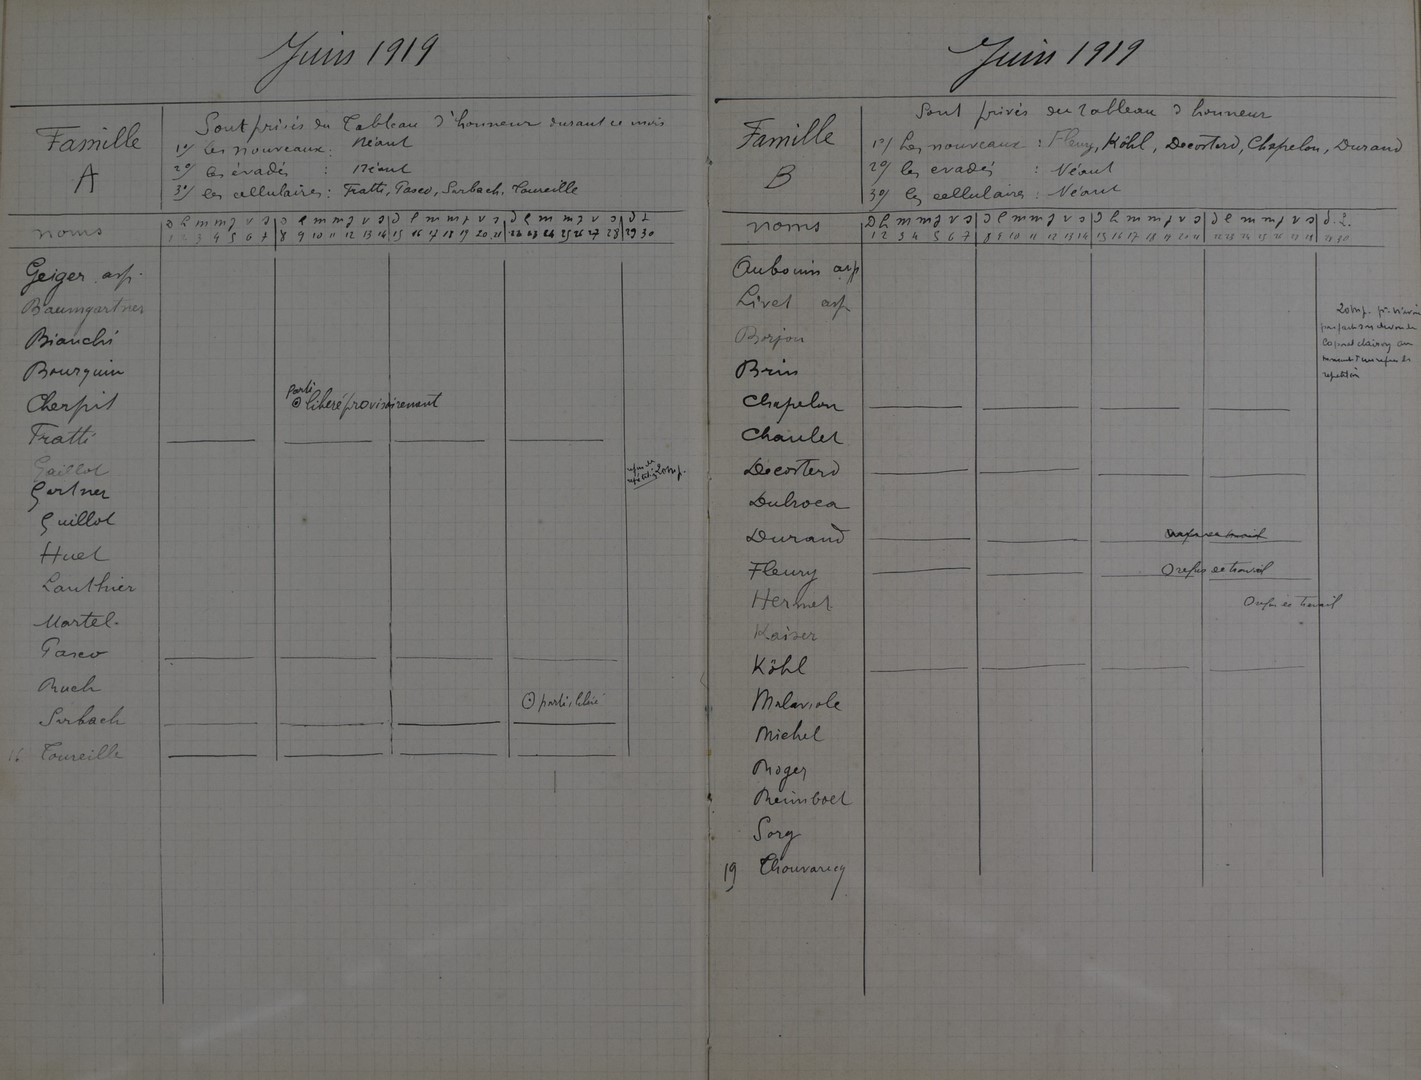 Juin 1919
Famille
A
Sont privés du Tableau d'honneur durant ce mois
1o/ les nouveaux : Néant
2o/ les évadés : Néant
3o/ les cellulaires : Fratti, Pasco, Surbach, Toureille
noms
D L m m J v S D L m m J v S D L m m J v S D L m m J v S D L
1 2 3 4 5 6 7 8 9 10 11 12 13 14 15 16 17 18 19 20 21 22 23 24 25 26 27 28 29 30
Geiger asp.
Baumgartner
Bianchi
Bourquin
parti
Cherpit libéré provisoirement
Fratti
Gaillot
Gartner
Guillot
Huel
Lauthier
Martel
Pasco
Ruch parti, libéré
Surbach
16 Toureille
Juin 1919
Famille
B
Sont privés du tableau d'honneur
1o/ Les nouveaux : Fleury, Köhl, Decosterd, Chapelon, Durand
2o/ les évadés : Néant
3o/ les cellulaires : Néant
noms
D L m m J v S D L m m J v S D L m m J v S D L m m J v S D L
1 2 3 4 5 6 7 8 9 10 11 12 13 14 15 16 17 18 19 20 21 22 23 24 25 26 27 28 29 30
Aubouin asp
Livet asp
Borjon
Brin
Chapelon
Chaulet
Decosterd
Dubroca
Durand
Fleury refus de travail
Hermet refus de travail
Kaiser
Köhl
Malaviole
Michel
Roger
Reimboet
Sorg
19 Thouvarecy